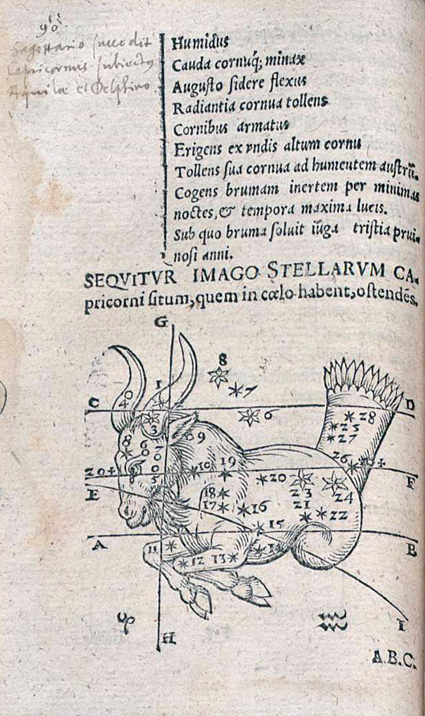 Sagittario succedit
Capricornus subiectus
Aquilæ et Delphino.
Humidus
Cauda cornuq́; minax
Augusto sidere flexus
Radiantia cornua tollens
Cornibus armatus
Erigens ex vndis altum cornu
Tollens sua cornua ad humentem austrū.
Cogens brumam inertem per minimas
noctes, & tempora maxima lucis.
Sub quo bruma soluit iuga tristia prui-
nosi anni.
SEQVITVR IMAGO STELLARVM CA-
pricorni situm, quem in cœlo habent, ostendēs.
G
8
7
1
C
6
D
28
3
9
25
27
26
10
19
20
E
20
23
24
F
18
17
16
21
22
15
A
11
14
B
12
13
♑
♒
I
H
A.B.C.